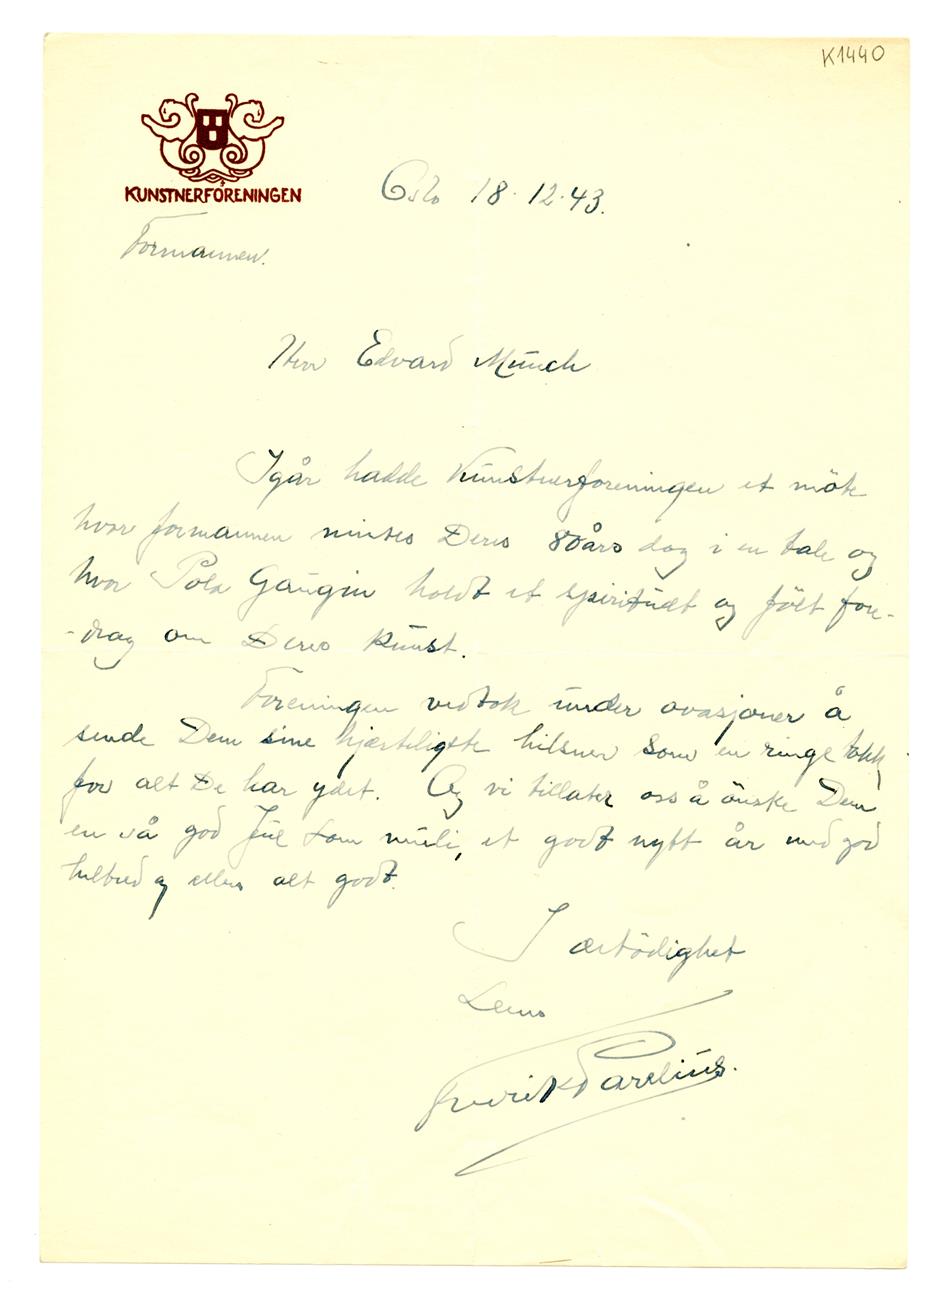 K1440
KUNSTNERFÖRENINGEN
Oslo 18.12.43.
Formannen.
Herr Edvard Munch
Igår hadde Kunstnerforeningen et möte
hvor formannen mintes Deres 80års dag i en tale og
hvor Pola Gaugin holdt et spirituelt og följt fore-
-drag om Deres kunst.
Foreningen vedtok under ovasjoner å
sende Dem sine hjærteligste hilsner som en ringe takk
for alt De har ydet. Og vi tillater oss å önske Dem
en så god Jul som muli, et godt nytt år med god
helbred og ellers alt godt.
I ærbödighet
Deres
Fredrik Parelius.